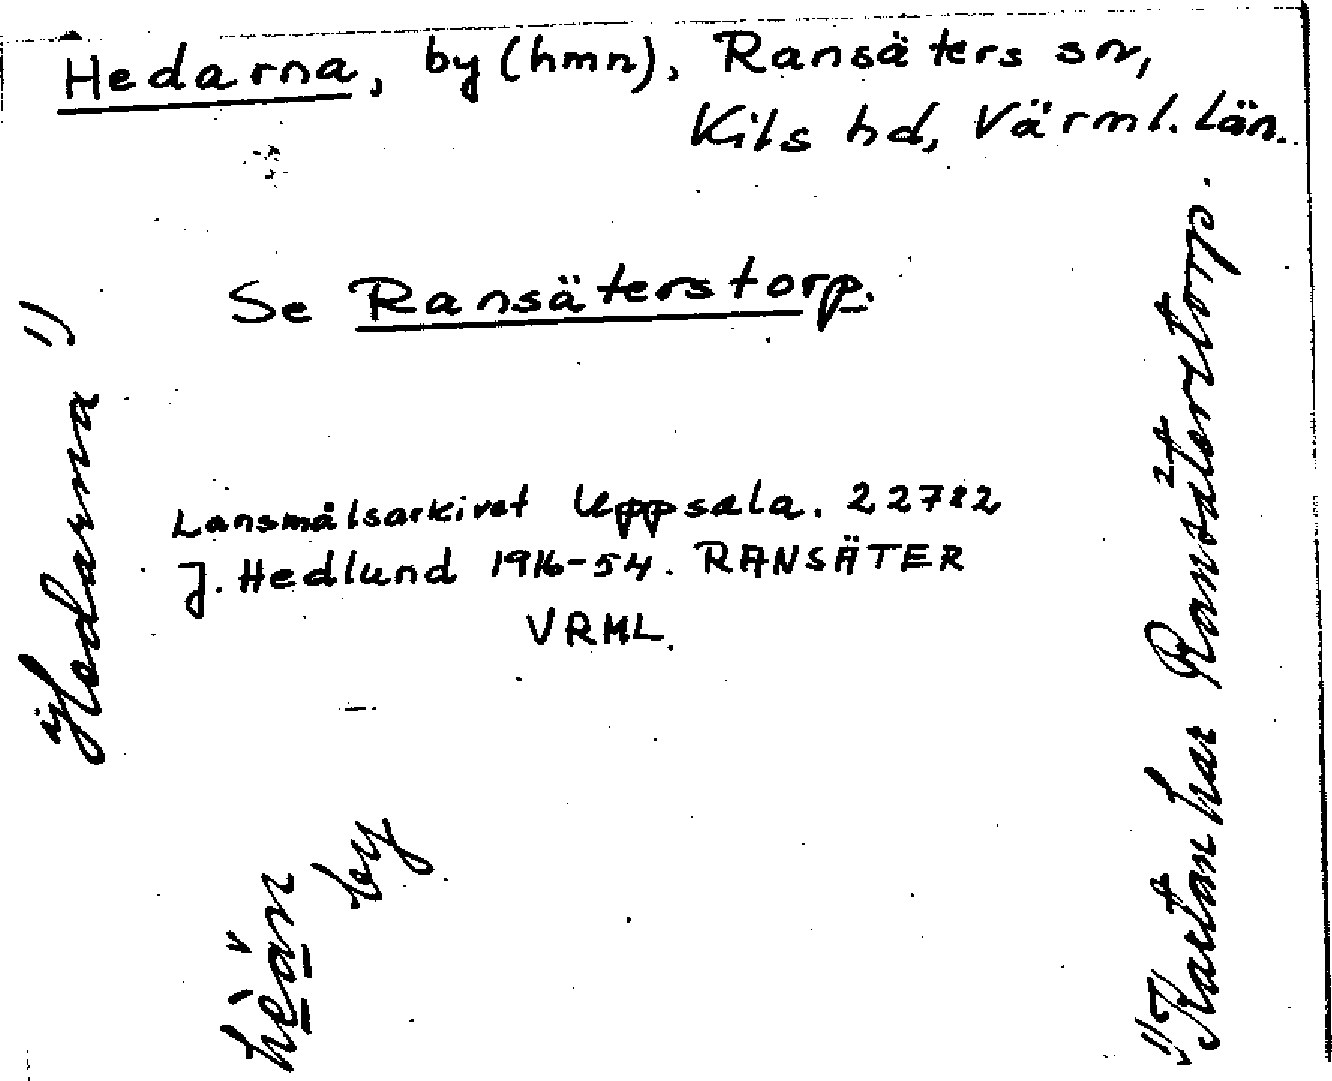 Hedarna, by (hmn), Ransäters sn,
Kils hd, Värml. län.
Se Ransäterstorp.
Lansmålsarkivet Uppsala. 22782
J. Hedlund 1916-54. RANSÄTER
VRML.
Hedarna 1)
by
1) Kartan har Ransäterstorp.